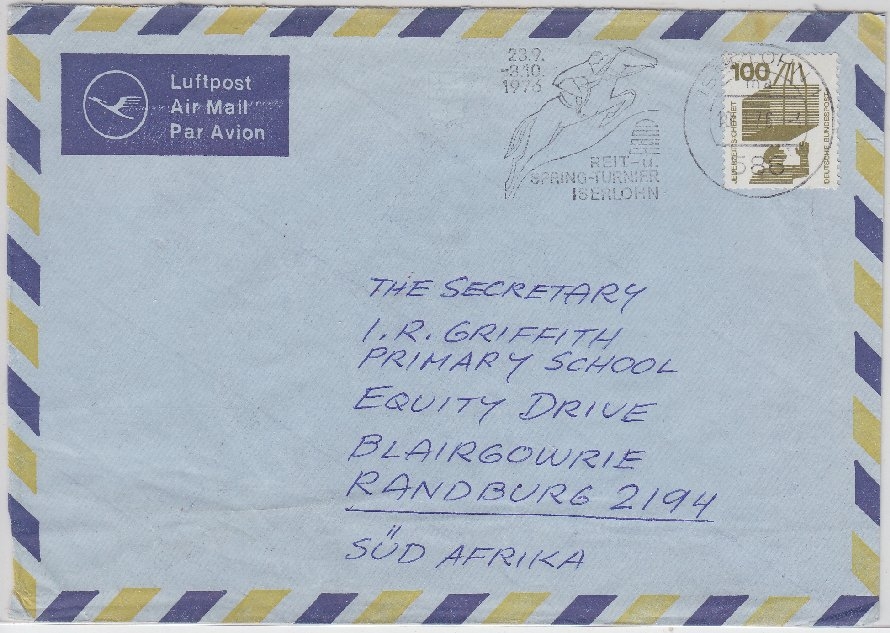 Luftpost
Air Mail
Par Avion
23.9.
-3.10.
1976
REIT-u.
SPRING-TURNIER
ISERLOHN
100
JEDERZEIT SICHERHEIT
DEUTSCHE BUNDESPOST
586
THE SECRETARY
I.R. GRIFFITH
PRIMARY SCHOOL
EQUITY DRIVE
BLAIRGOWRIE
RANDBURG 2194
SÜD AFRIKA